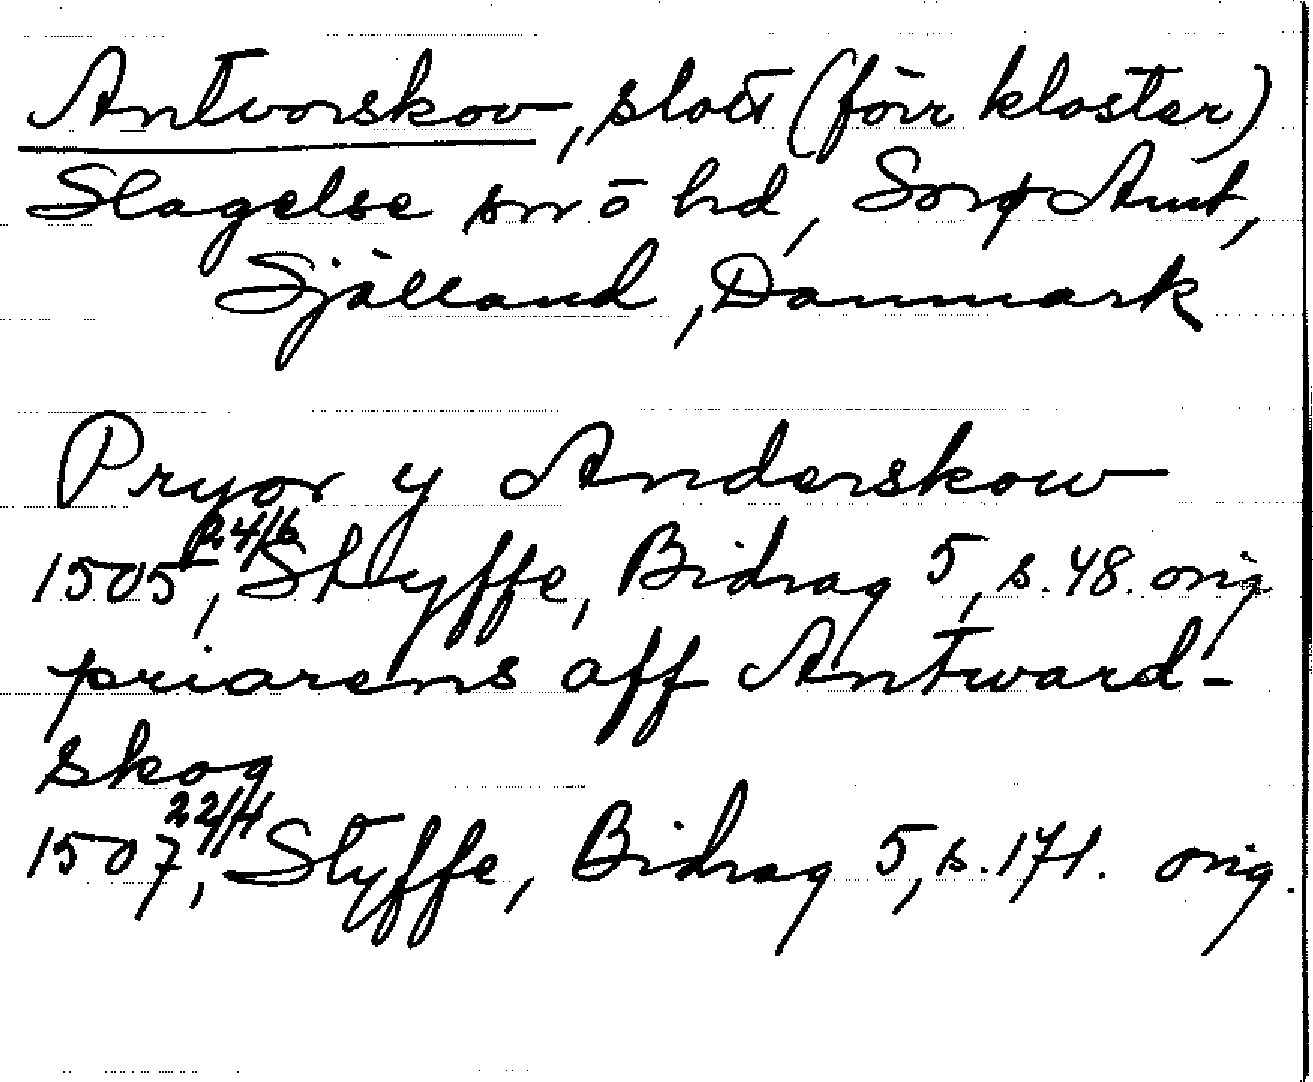 Antvorskov, slott (förr kloster)
Slagelse sn o hd, Sorø Amt,
Själland, Danmark
Pryor y Anderskow
1505 24/6, Styffe, Bidrag 5, s. 48. orig
priarens aff Antward-
skog
1507 22/4, Styffe, Bidrag 5, s. 171. orig.